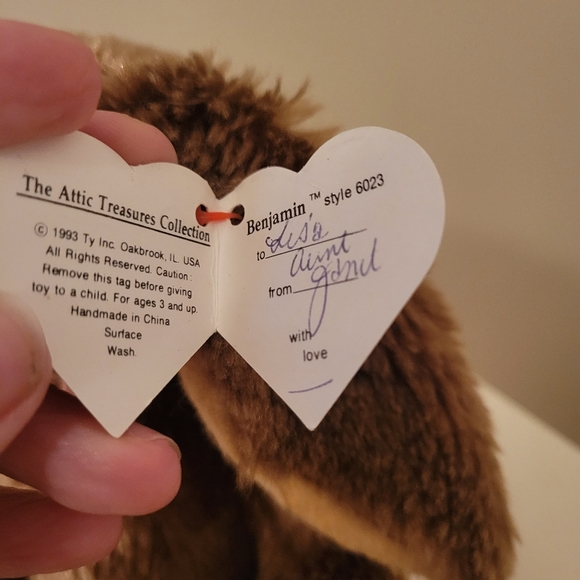 The Attic Treasures Collection
© 1993 Ty Inc. Oakbrook, IL. USA
All Rights Reserved. Caution:
Remove this tag before giving
toy to a child. For ages 3 and up.
Handmade in China
Surface
Wash.
Benjamin ™ style 6023
to Lisa
Aunt
from Janel
with
love